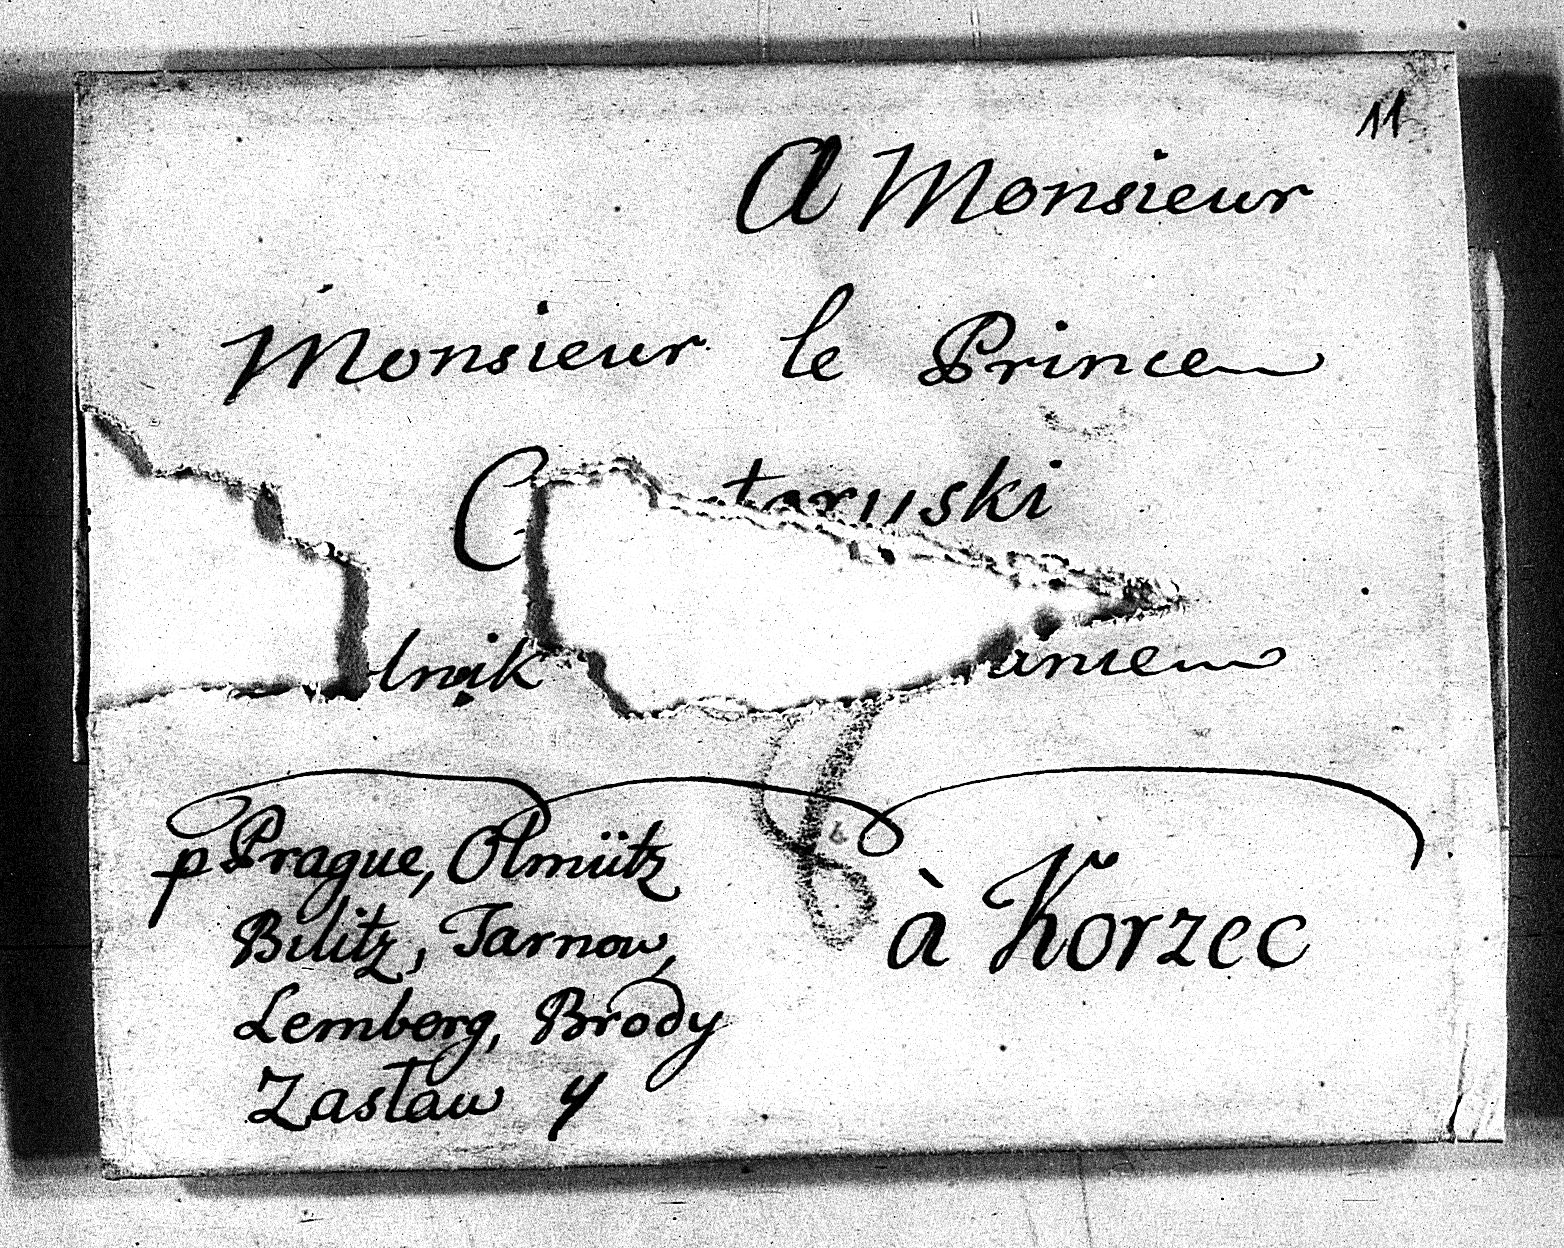 11
A Monsieur
Monsieur le Prince
C toryski
lnik anie
p Prague, Olmütz
Bilitz, Tarnow,
Lemberg, Brody
Zasław y
à Korzec